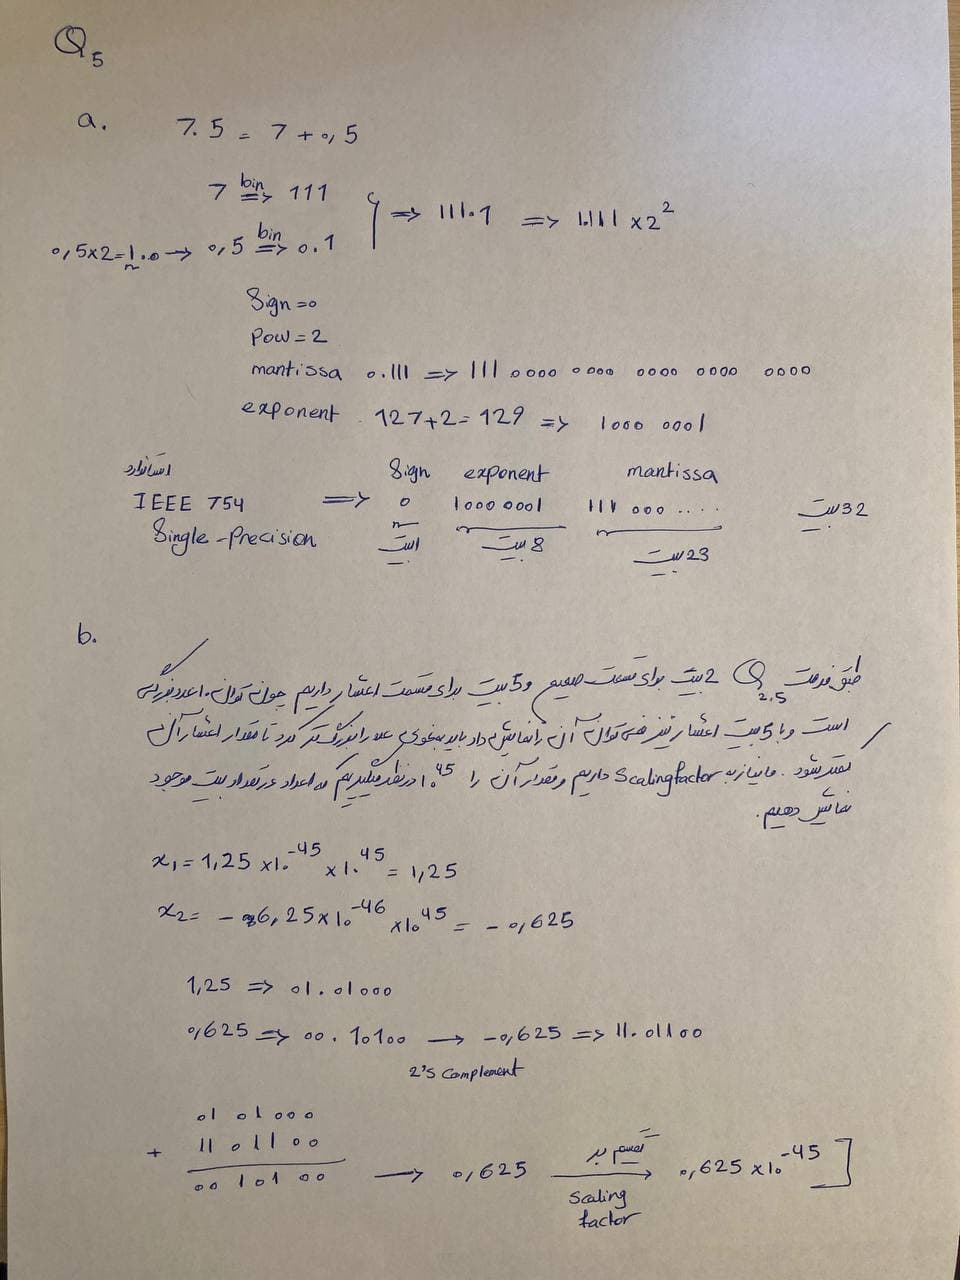 Q5
a. 7.5 = 7 + 0,5
7 bin=> 111
0,5x2=1.0 → 0,5 bin=> 0.1 } => 111.1 => 1.111 x 2^2
Sign = 0
Pow = 2
mantissa 0.111 => 111 0000 0000 0000 0000 0000
exponent 127+2 = 129 => 1000 0001
استاندارد Sign exponent mantissa
IEEE 754 => 0 1000 0001 111 000 .... 32 بیت
Single-Precision 1 بیت 8 بیت 23 بیت
b.
طبق فرمت Q2,5 2 بیت برای قسمت صحیح و 5 بیت برای قسمت اعشار داریم چون توان
است و با 5 بیت اعشار نیز نمی توان آن را نمایش داد باید به نحوی عدد را بزرگتر کرد تا مقدار اعشار آن
کمتر شود. ما نیاز به Scaling factor داریم و مقدار آن را 10^45 در نظر میگیریم که اعداد در تعداد بیت موجود
نمایش دهیم.
x1 = 1,25 x10^-45 x10^45 = 1,25
x2 = - 6,25 x10^-46 x10^45 = - 0,625
1,25 => 01.01000
0,625 => 00.10100 → -0,625 => 11.01100
2's Complement
01 01 000
+ 11 011 00
00 101 00 → 0,625 تقسیم بر Scaling factor → 0,625 x10^-45 ]